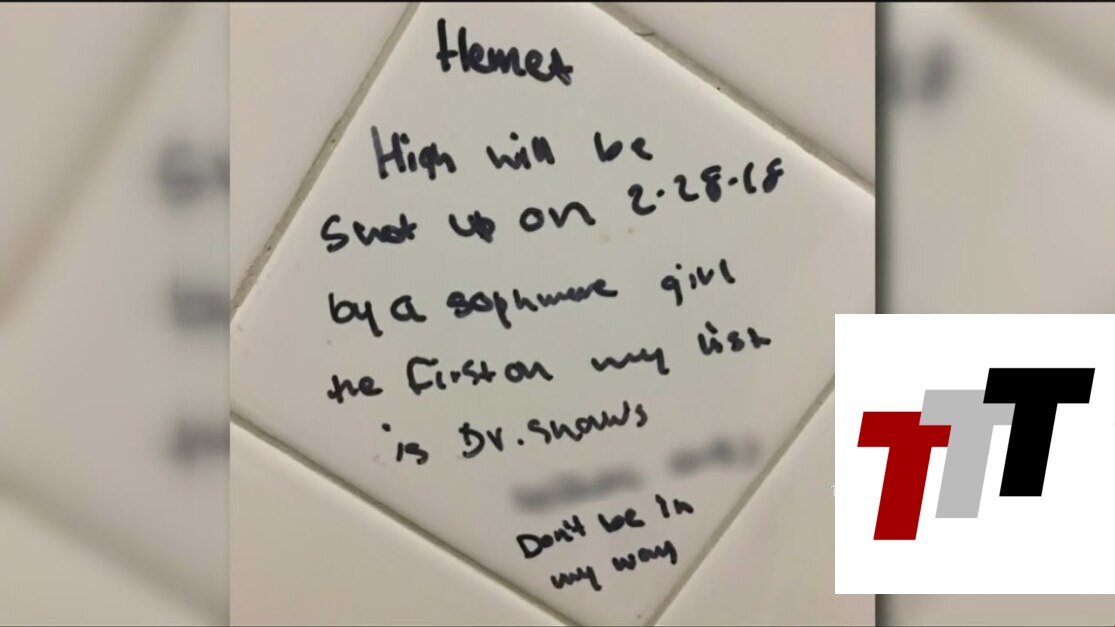 Hemet
High will be
Shot up on 2.28.18
by a sophmore girl
the First on my list
is Dr. Shows
Don't be in
my way
TTT